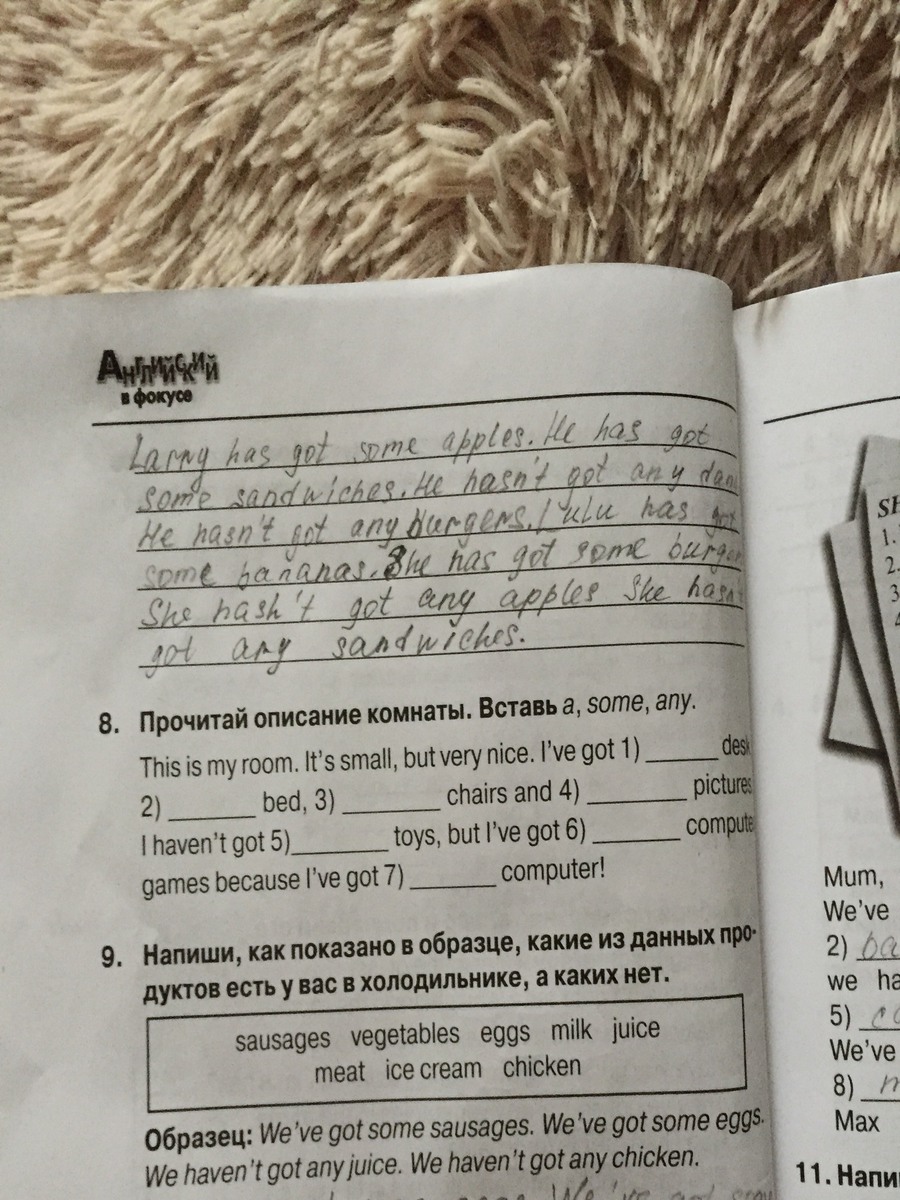 Английский
в фокусе
Larry has got some apples. He has got
some sandwiches. He hasn't got any
He hasn't got any burgers. Lulu has got
some bananas. She has got some
She hash't got any apples She
got any sandwiches.
8. Прочитай описание комнаты. Вставь a, some, any.
This is my room. It's small, but very nice. I've got 1) ______ desk
2) ______ bed, 3) ______ chairs and 4) ______ pictures
I haven't got 5) ______ toys, but I've got 6) ______ compute
games because I've got 7) ______ computer!
9. Напиши, как показано в образце, какие из данных про-
дуктов есть у вас в холодильнике, а каких нет.
sausages vegetables eggs milk juice
meat ice cream chicken
Образец: We've got some sausages. We've got some eggs.
We haven't got any juice. We haven't got any chicken.
1.
2.
3
Mum,
We've
2)
we ha
5)
We've
8)
Max
11. Напи